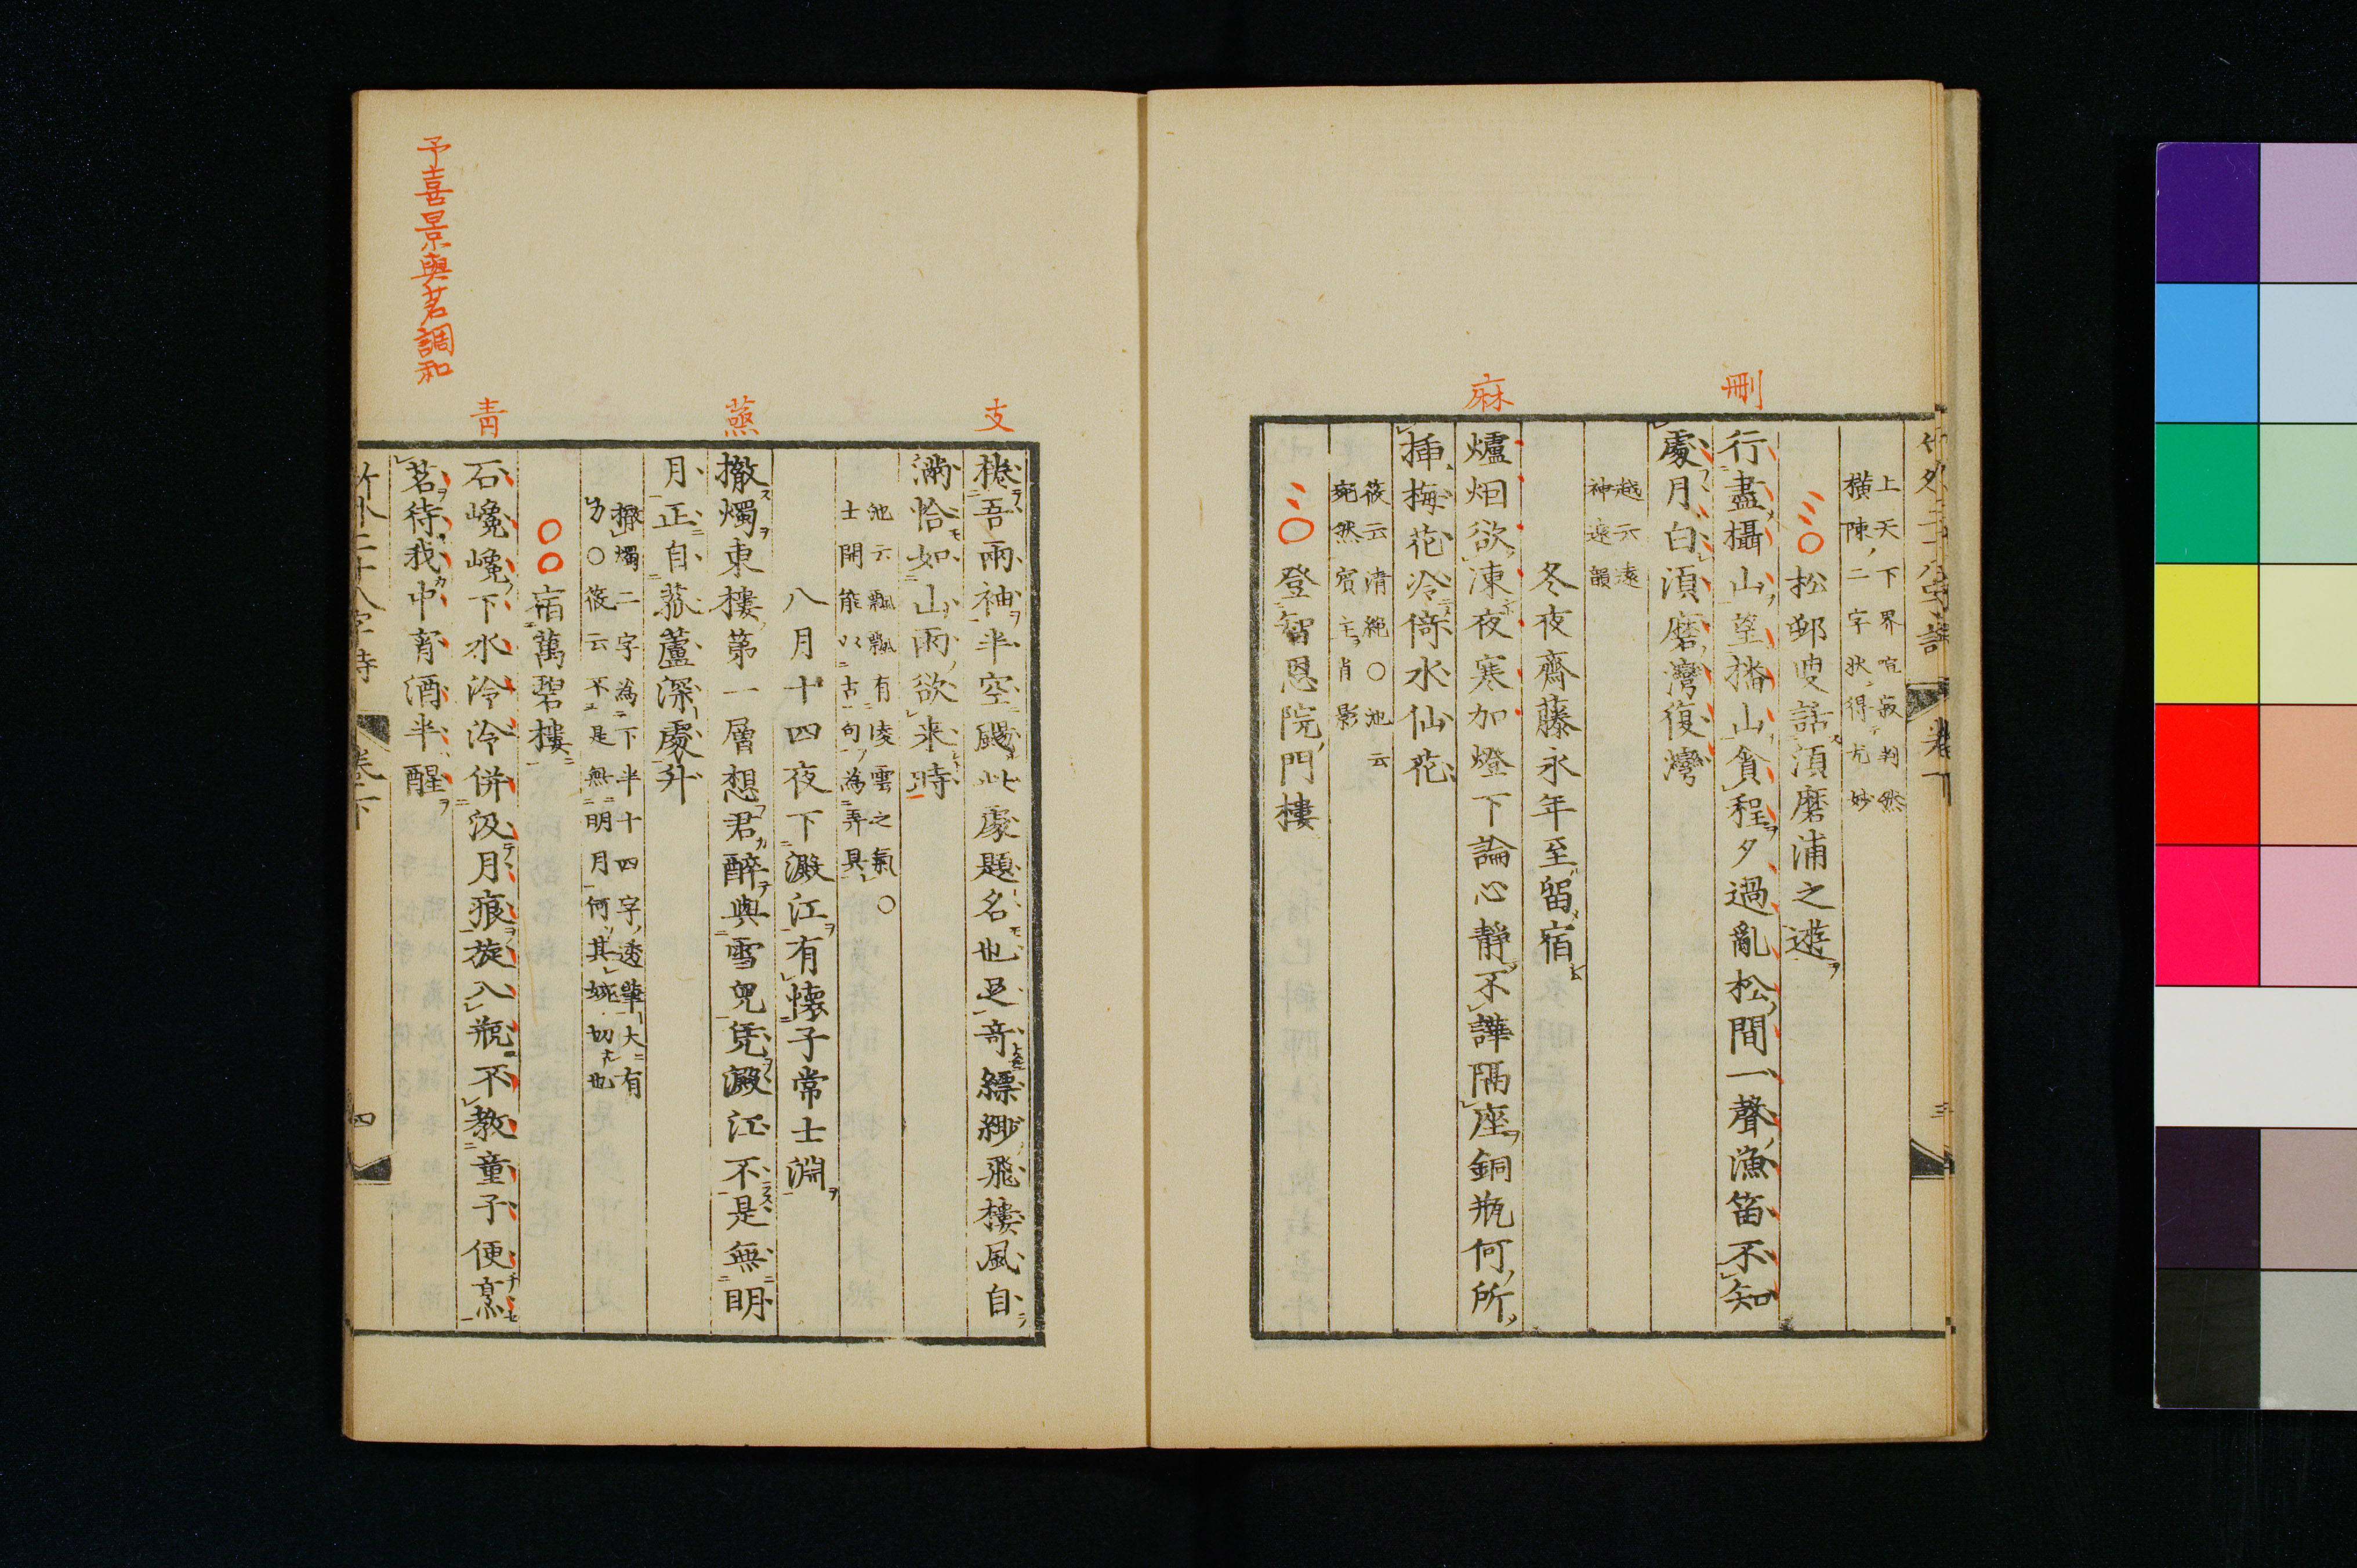 刪
麻
上天下界喧寂判然
橫陳二字狀得尤妙
松鄣叟話須磨浦之遊
行盡攝山望播山貪程夕過亂松間一聲漁笛不知
處月白須磨灣復灣
越云遠
神遠韻
冬夜齋藤永年至留宿
爐烟欲凍夜寒加燈下論心靜不譁隔座銅瓶何所
插梅花冷倚水仙花
筱云清絕○池云
宛然賓主肖影
登智恩院門樓
卷下
三
予喜景與茗調和
支
蒸
青
捲吾兩袖半空颺此處題名也足奇縹緲飛樓風自
滿恰如山雨欲来時
池云飄飄有凌雲之氣○
士開能以古句為弄具
八月十四夜下澱江有懷子常士淵
撤燭東樓第一層想君醉與雪兒凭澱江不是無明
月正自菰蘆深處升
撤燭二字為下半十四字透筆大有
力○筱云不是無明月何其婉切也
宿萬碧樓
石巉巉下水泠泠併汲月痕旋入瓶不教童子便烹
茗待我中宵酒半醒
竹外二十八字詩
卷下
四